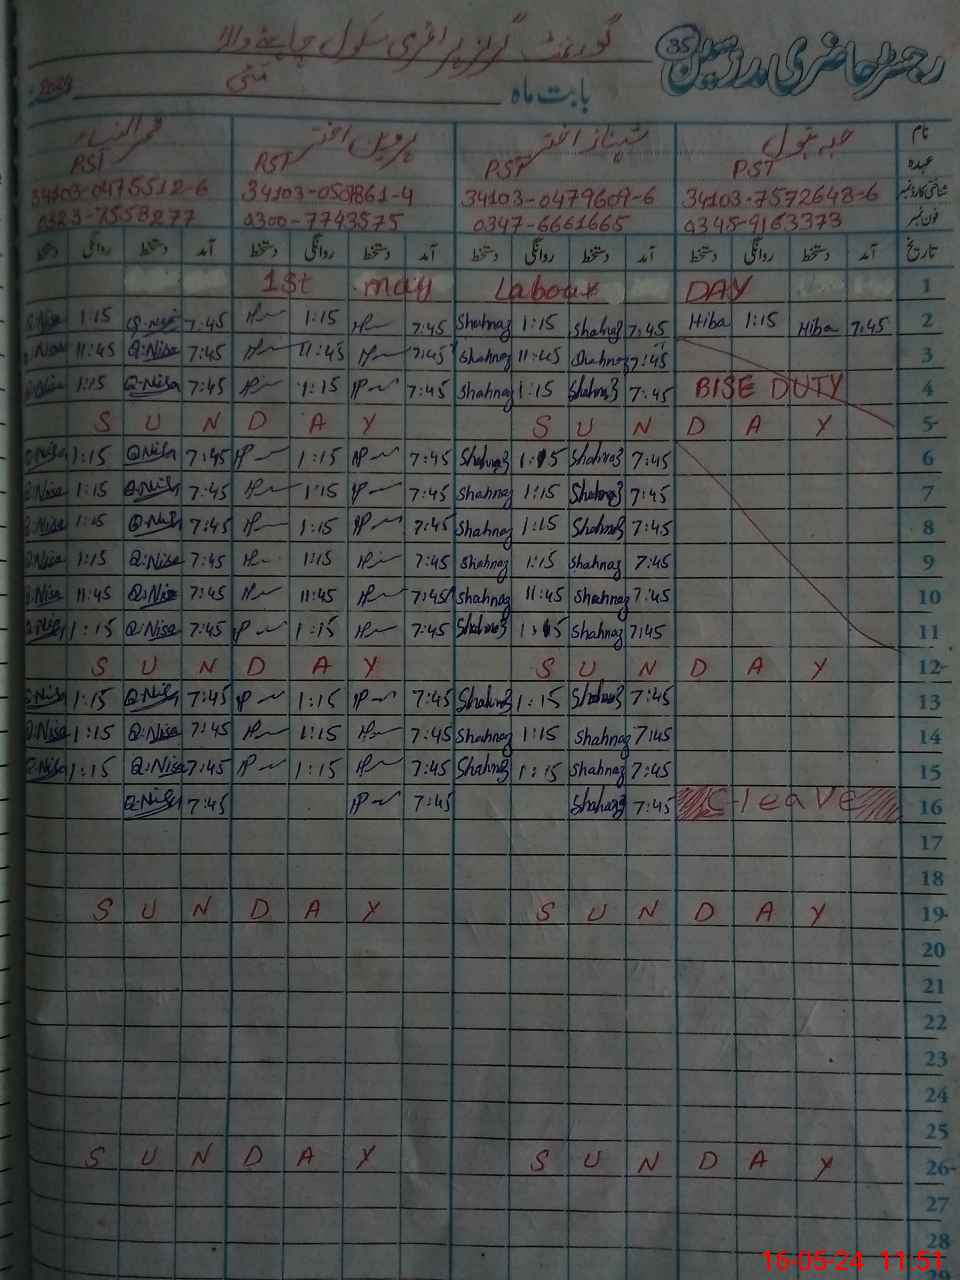 رجسٹر حاضری مدرسین 35 گورنمنٹ گرلز پرائمری سکول چاہے والا
بابت ماہ مئی 2024
نام حبہ بتول شہناز اختر پروین اختر قمر النساء
عہدہ PST PST PST PST
شناختی کارڈ نمبر 34103-7572648-6 34103-0479609-6 34103-0509861-4 34103-0475512-6
فون نمبر 0345-9163373 0347-6661665 0300-7743575 0323-7558277
تاریخ آمد دستخط روانگی دستخط آمد دستخط روانگی دستخط آمد دستخط روانگی دستخط آمد دستخط روانگی دستخط
1st may Labour DAY 1
Q.Nisa 1:15 Q.Nisa 7:45 1:15 7:45 Shahnaz 1:15 Shahnaz 7:45 Hiba 1:15 Hiba 7:45 2
Q.Nisa 11:45 Q:Nisa 7:45 11:45 7:45 Shahnaz 11:45 Shahnaz 7:45 3
Q.Nisa 1:15 Q.Nisa 7:45 1:15 7:45 Shahnaz 1:15 Shahnaz 7:45 BISE DUTY 4
S U N D A Y S U N D A Y 5
Q.Nisa 1:15 Q.Nisa 7:45 1:15 7:45 Shahnaz 1:15 Shahnaz 7:45 6
Q.Nisa 1:15 Q.Nisa 7:45 1:15 7:45 Shahnaz 1:15 Shahnaz 7:45 7
Q.Nisa 1:15 Q.Nisa 7:45 1:15 7:45 Shahnaz 1:15 Shahnaz 7:45 8
Q.Nisa 1:15 Q.Nisa 7:45 1:15 7:45 Shahnaz 1:15 Shahnaz 7:45 9
Q.Nisa 11:45 Q.Nisa 7:45 11:45 7:45 Shahnaz 11:45 Shahnaz 7:45 10
Q.Nisa 1:15 Q:Nisa 7:45 1:15 7:45 Shahnaz 1:15 Shahnaz 7:45 11
S U N D A Y S U N D A Y 12
Q.Nisa 1:15 Q.Nisa 7:45 1:15 7:45 Shahnaz 1:15 Shahnaz 7:45 13
Q.Nisa 1:15 Q:Nisa 7:45 1:15 7:45 Shahnaz 1:15 Shahnaz 7:45 14
Q.Nisa 1:15 Q.Nisa 7:45 1:15 7:45 Shahnaz 1:15 Shahnaz 7:45 15
Q.Nisa 7:45 7:45 Shahnaz 7:45 C-leave 16
17
18
S U N D A Y S U N D A Y 19
20
21
22
23
24
25
S U N D A Y S U N D A Y 26
27
28
29
16-05-24 11:51